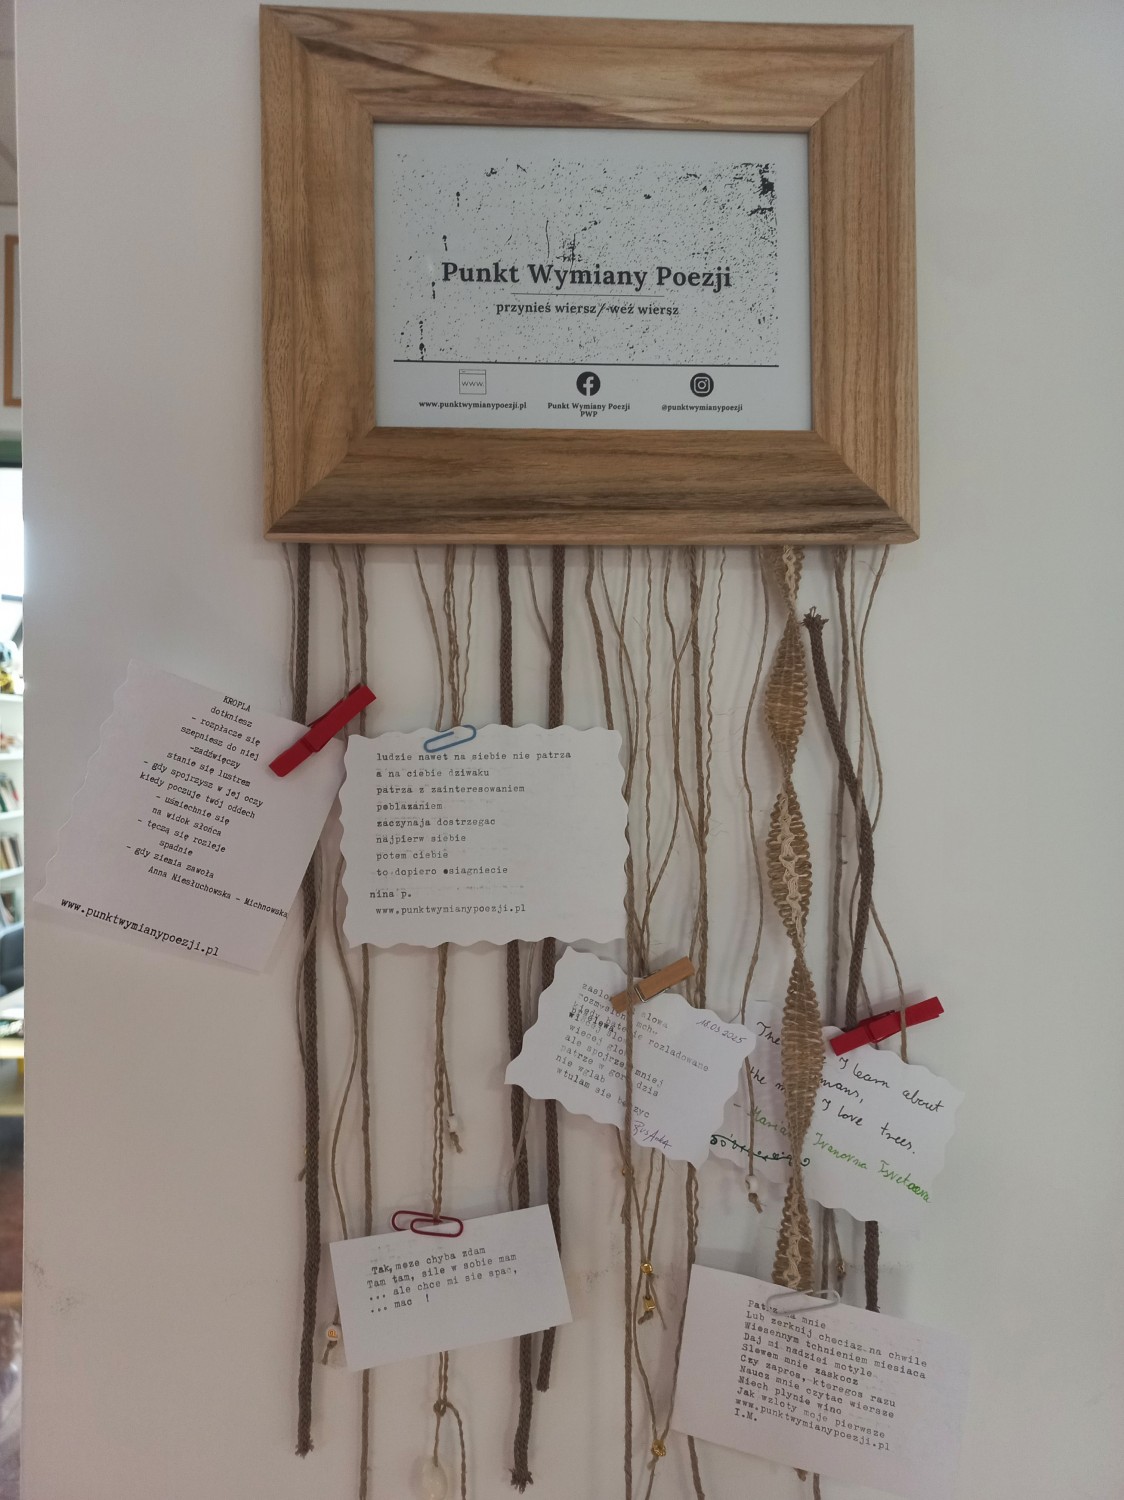 Punkt Wymiany Poezji
przynieś wiersz/weź wiersz
www
www.punktwymianypoezji.pl
Punkt Wymiany Poezji
PWP
@punktwymianypoezji
KROPLA
dotkniesz
- rozpłacze się
szepniesz do niej
-zadźwięczy
stanie się lustrem
- gdy spojrzysz w jej oczy
kiedy poczuje twój oddech
- uśmiechnie się
na widok słońca
- tęczą się rozleje
spadnie
- gdy ziemia zawoła
Anna Niesłuchowska - Michnowska
www.punktwymianypoezji.pl
ludzie nawet na siebie nie patrza
a na ciebie dziwaku
patrza z zainteresowaniem
poblazaniem
zaczynaja dostrzegac
najpierw siebie
potem ciebie
to dopiero osiagniecie
nina p.
www.punktwymianypoezji.pl
18.03.2025
slowa
rozladowane
wiecej
ale spojrze mniej
patrze w gore dzis
nie wglab
wtulam sie
The I learn about
the humans,
I love trees.
- Ivanovna Tsvetaeva
Tak, moze chyba zdam
Tam tam, sile w sobie mam
... ale chce mi sie spac,
... mac !
Patrz na mnie
Lub zerknij chociaz na chwile
Wiosennym tchnieniem miesiaca
Daj mi nadziei motyle
Slowem mnie zaskocz
Czy zapros, ktoregos razu
Naucz mnie czytac wiersze
Niech plynie wino
Jak wzloty moje pierwsze
www.punktwymianypoezji.pl
I.M.